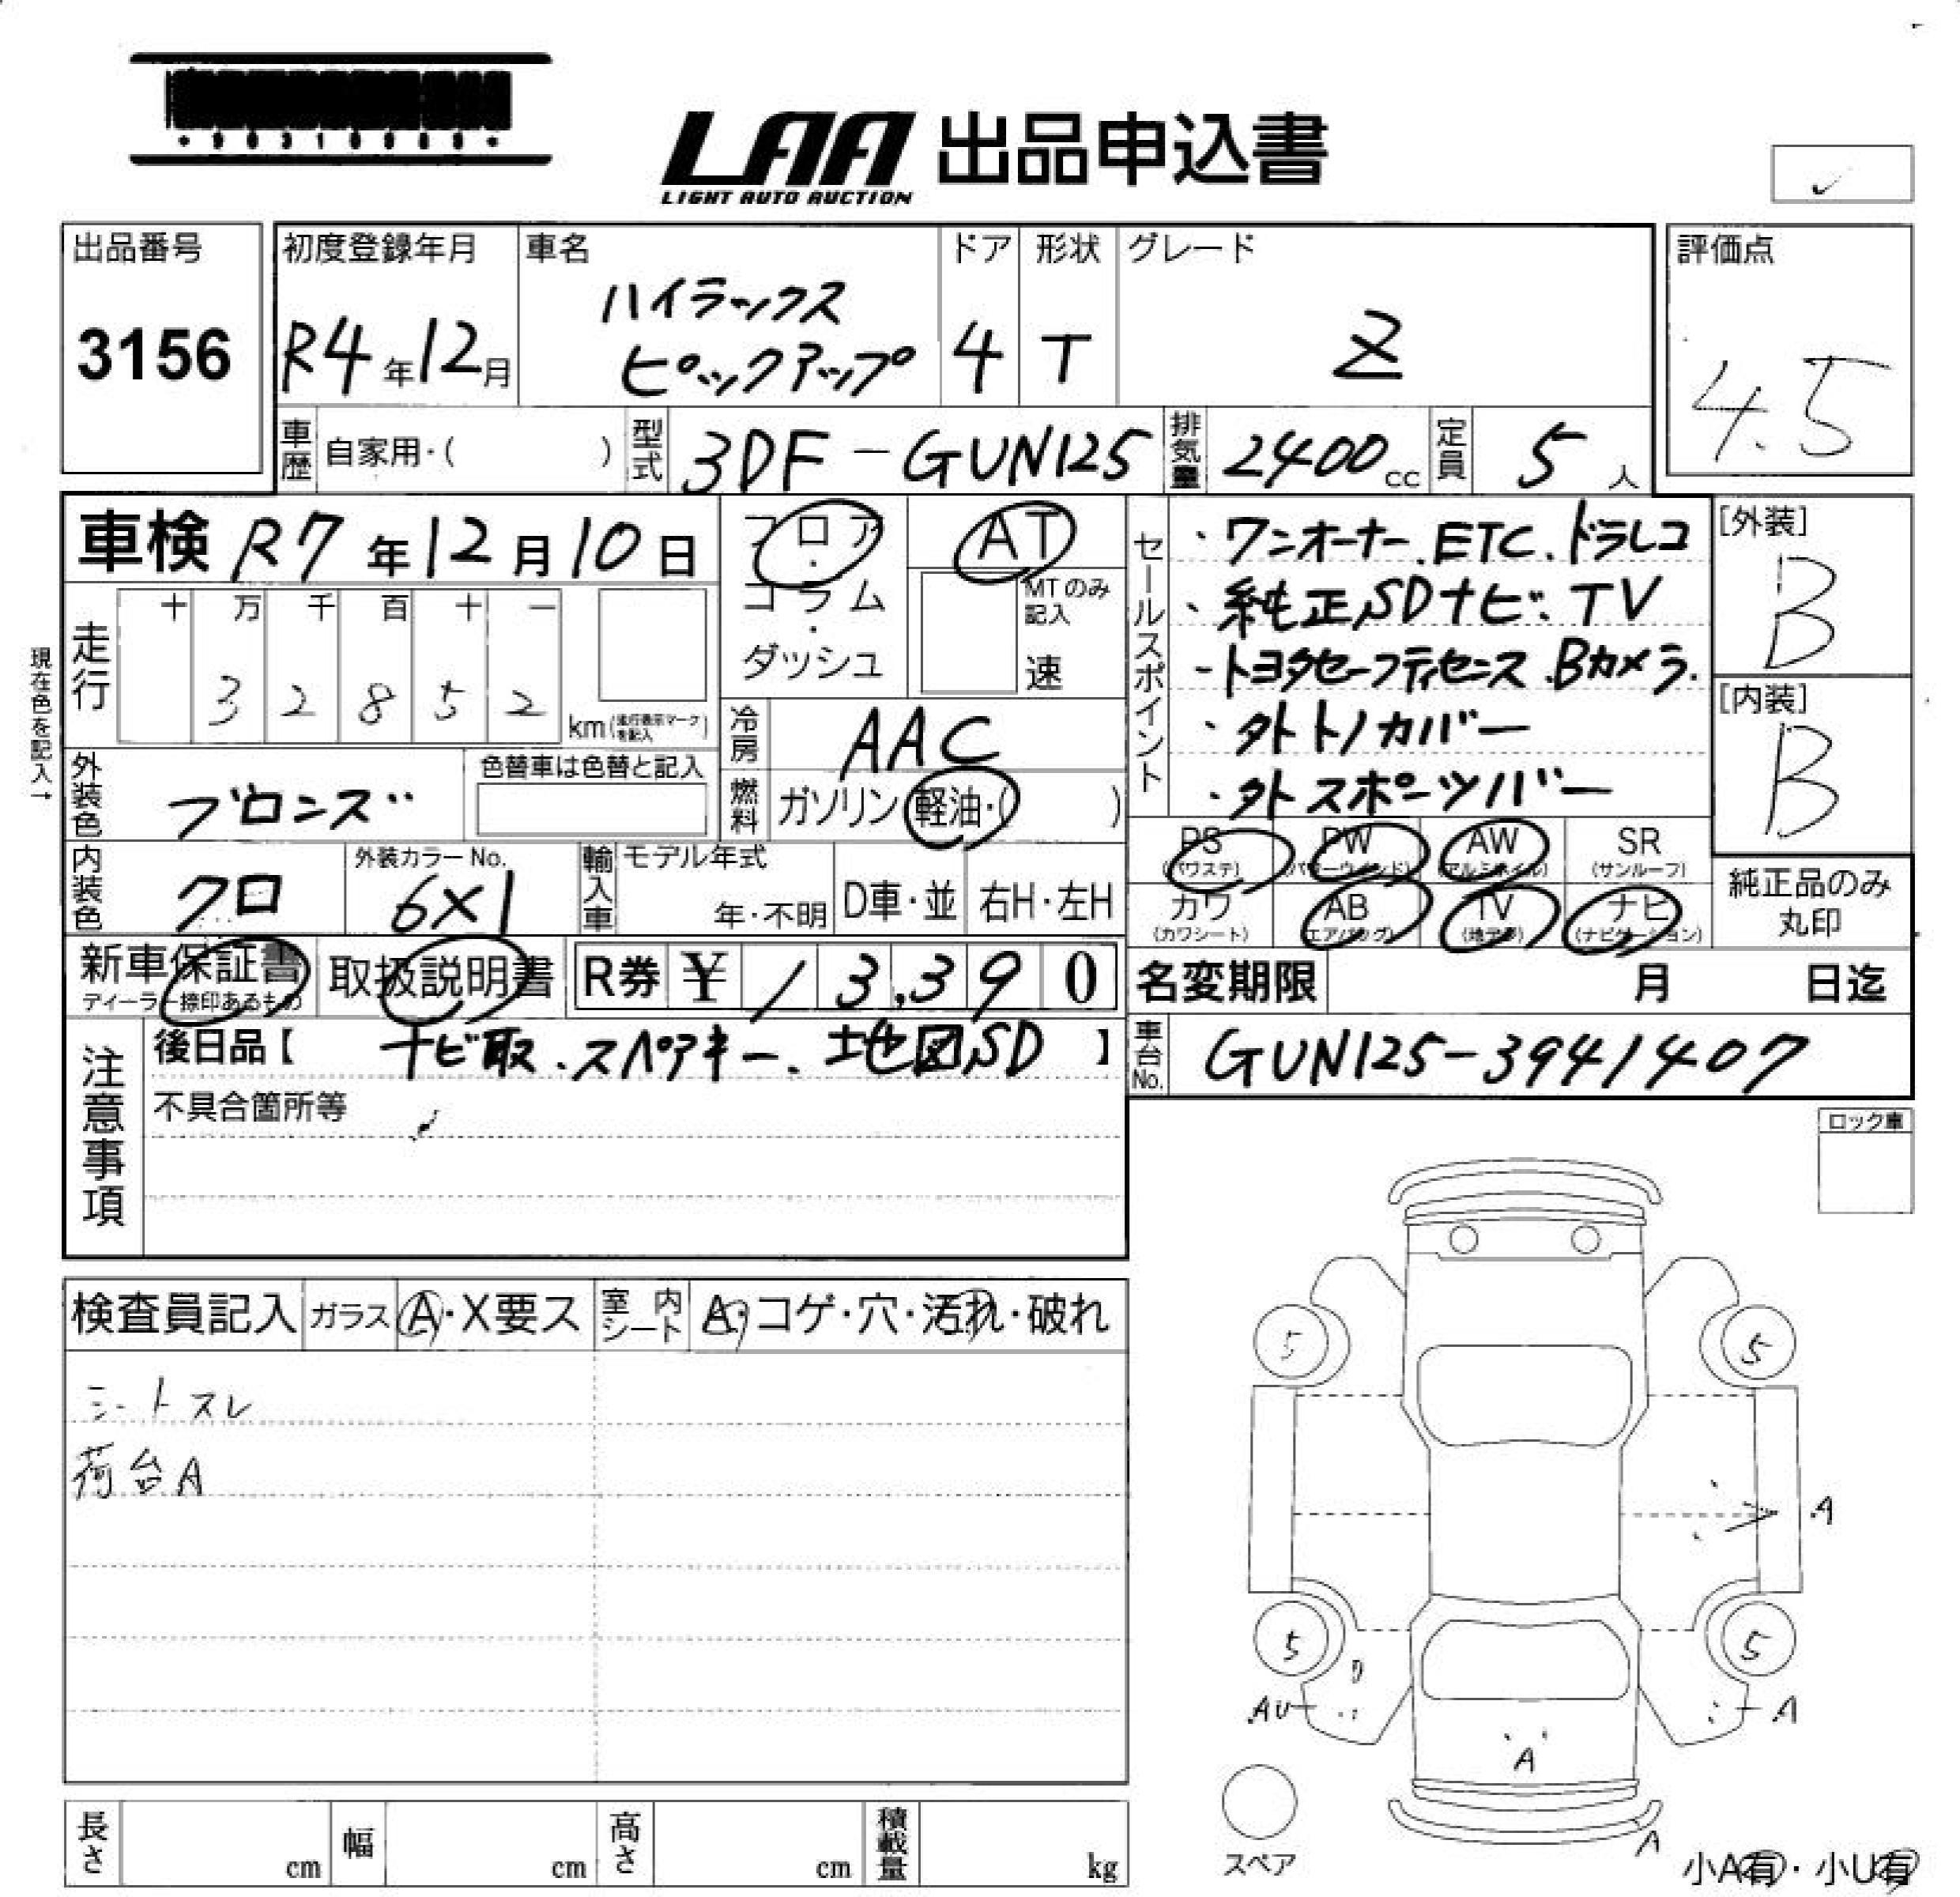 LAA 出品申込書
LIGHT AUTO AUCTION
出品番号
3156
初度登録年月
R4年12月
車名
ハイラックス
ピックアップ
ドア
4
形状
T
グレード
Z
評価点
4.5
車歴 自家用・( )
型式 3DF-GUN125
排気量 2400cc
定員 5人
車検 R7年12月10日
現在色を記入→
走行
十 万 千 百 十 一
3 2 8 5 2 km(走行表示マークを記入)
フロア・コラム・ダッシュ
AT
MTのみ記入
速
冷房 AAC
燃料 ガソリン・軽油・( )
外装色 ブロンズ
色替車は色替と記入
内装色 クロ
外装カラーNo.
6X1
輸入車 モデル年式
年・不明 D車・並 右H・左H
セールスポイント
・ワンオーナー.ETC.ドラレコ
・純正SDナビ.TV
・トヨタセーフティセンス.Bカメラ.
・外トノカバー
・外スポーツバー
[外装]
B
[内装]
B
PS
(パワステ)
PW
(パワーウインド)
AW
(アルミホイル)
SR
(サンルーフ)
カワ
(カワシート)
AB
(エアバッグ)
TV
(地デジ)
ナビ
(ナビゲーション)
純正品のみ
丸印
新車保証書
ディーラー捺印あるもの
取扱説明書
R券 ¥13,390
名変期限 月 日迄
注意事項
後日品【 ナビ取.スペアキー.地図SD 】
不具合箇所等
車台No. GUN125-3941407
ロック車
検査員記入 ガラス A・X要ス 室内シート A・コゲ・穴・汚れ・破れ
シートスレ
荷台A
5
5
A
5
5
D
AU
A
A
A
スペア
小A有・小U有
長さ cm 幅 cm 高さ cm 積載量 kg